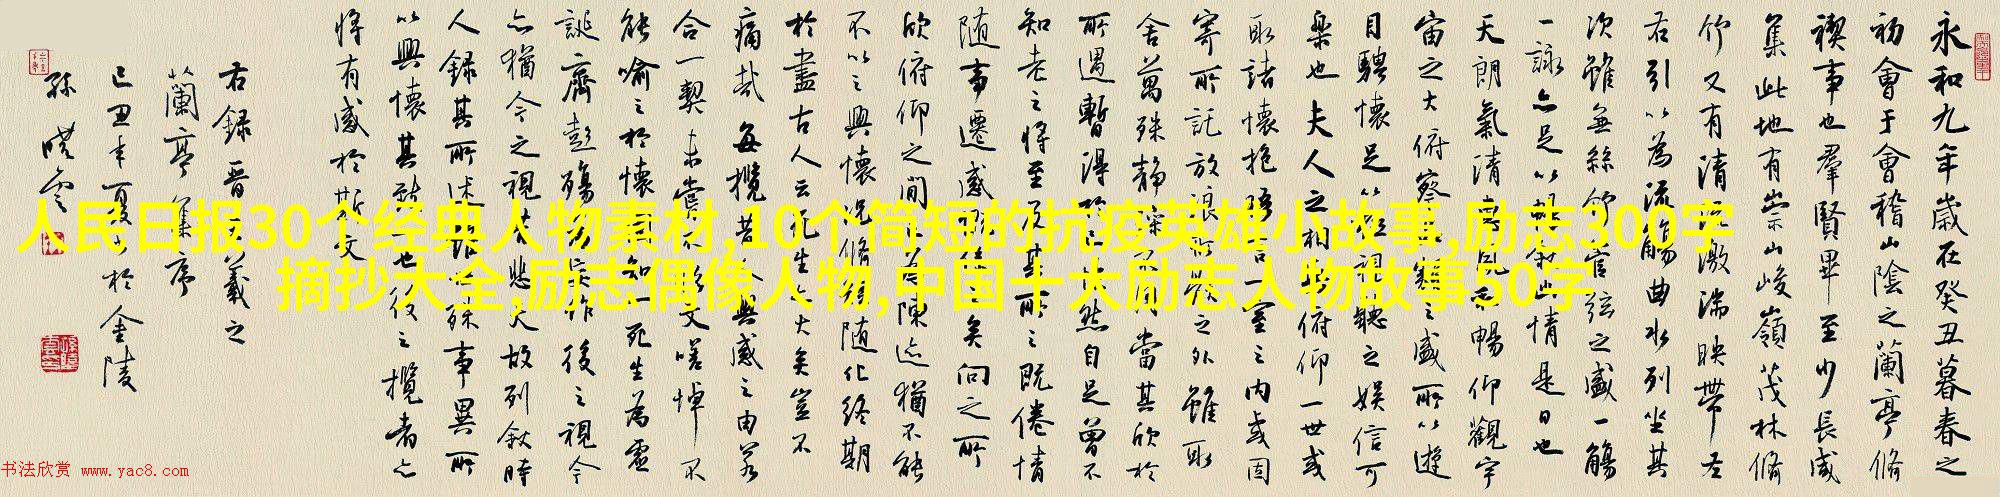 人民日报30个经典人物素材,10个简短的抗疫英雄小故事,励志300字
摘抄大全,励志偶像人物,中国十大励志人物故事50字
永和九年歲在癸丑暮春之
初會于會稽山陰之蘭亭脩
禊事也羣賢畢至少長咸
集此地有崇山峻嶺茂林脩
竹又有清流激湍映帶左
右引以為流觴曲水列坐其
次雖無絲竹管弦之盛一觴
一詠亦足以暢敘幽情是日也
天朗氣清惠風和暢仰觀宇
宙之大俯察品類之盛所以遊
目騁懷足以極視聽之娛信可
樂也夫人之相與俯仰一世或
取諸懷抱晤言一室之內或因
寄所託放浪形骸之外雖取
舍萬殊靜躁不同當其欣於
所遇暫得於己快然自足曾不
知老之將至及其所之既倦情
随事遷感慨係之矣向之所
欣俯仰之間以為陳迹猶不能
不以之興懷況脩短随化終期
於盡古人云死生亦大矣豈不
痛哉每攬昔人興感之由若
合一契未嘗不臨文嗟悼不
能喻之於懷固知一死生為虛
誕齊彭殤為妄作後之視今
亦猶今之視昔悲夫故列敘時
人錄其所述雖世殊事異所
以興懷其致一也後之攬者亦
將有感於斯文
右錄晉王羲之
蘭亭集序
己丑年夏於金陵
孫曉雲
书法欣赏 www.yac8.com